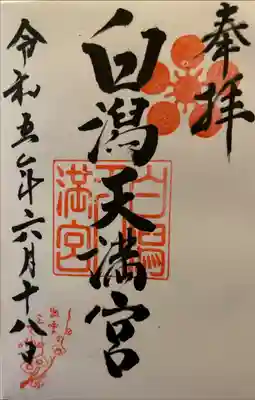 奉拝
白潟天満宮
令和五年六月十八日
白潟天満宮